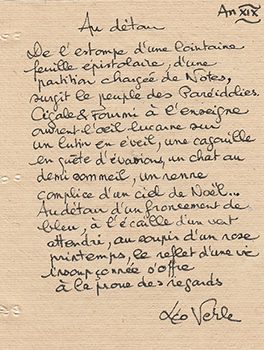 An XIX
Au détour
De l'estampe d'une lointaine
feuille épistolaire, d'une
partition chargée de Notes,
surgit le peuple des Pareidolies.
Cigale & Fourmi à l'enseigne
ouvrent l'œil lucarne sur
un lutin en éveil, une cagouille
en quête d'évasions, un chat au
demi sommeil, un renne
complice d'un ciel de Noël...
Au détour d'un froncement de
bleu, à l'écaille d'un vert
attendri, au soupir d'un rose
printemps, le reflet d'une vie
insoupçonnée s'offre
à la proue des regards
Léo Verle